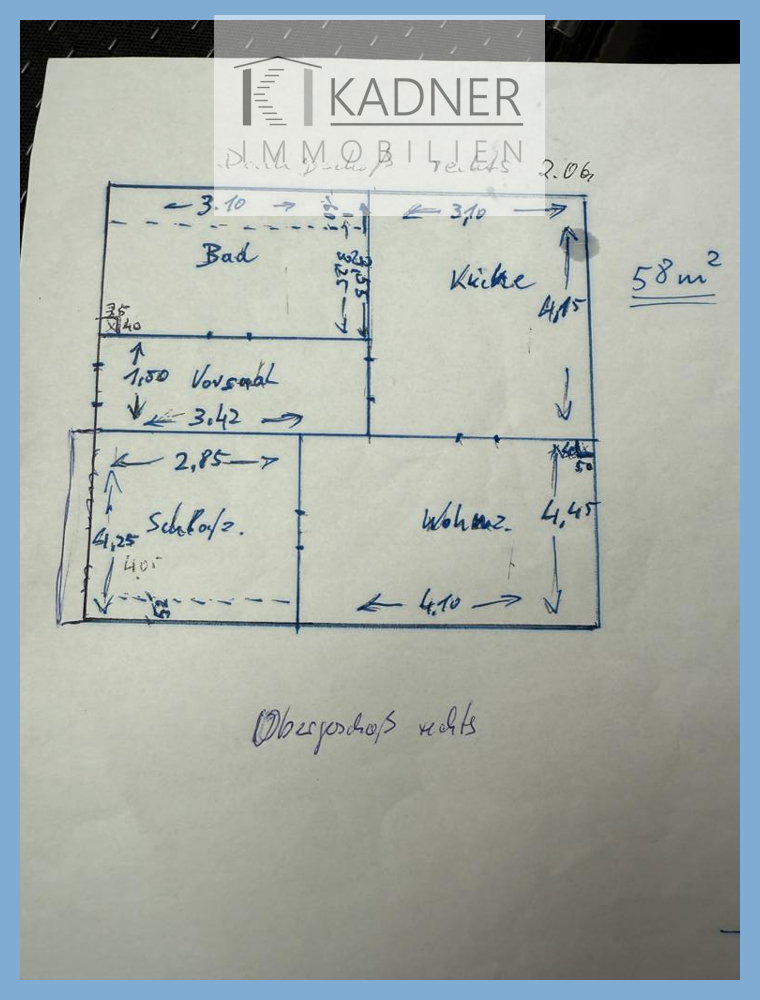 KADNER
IMMOBILIEN
rechts 2.OG
3.10
3,10
Bad
Küche
58 m²
4,15
35
40
1,50 Vorsaal
3.42
2,85
50
Schlafz.
Wohnz.
4,45
4,25
4.05
4.10
Obergeschoß rechts